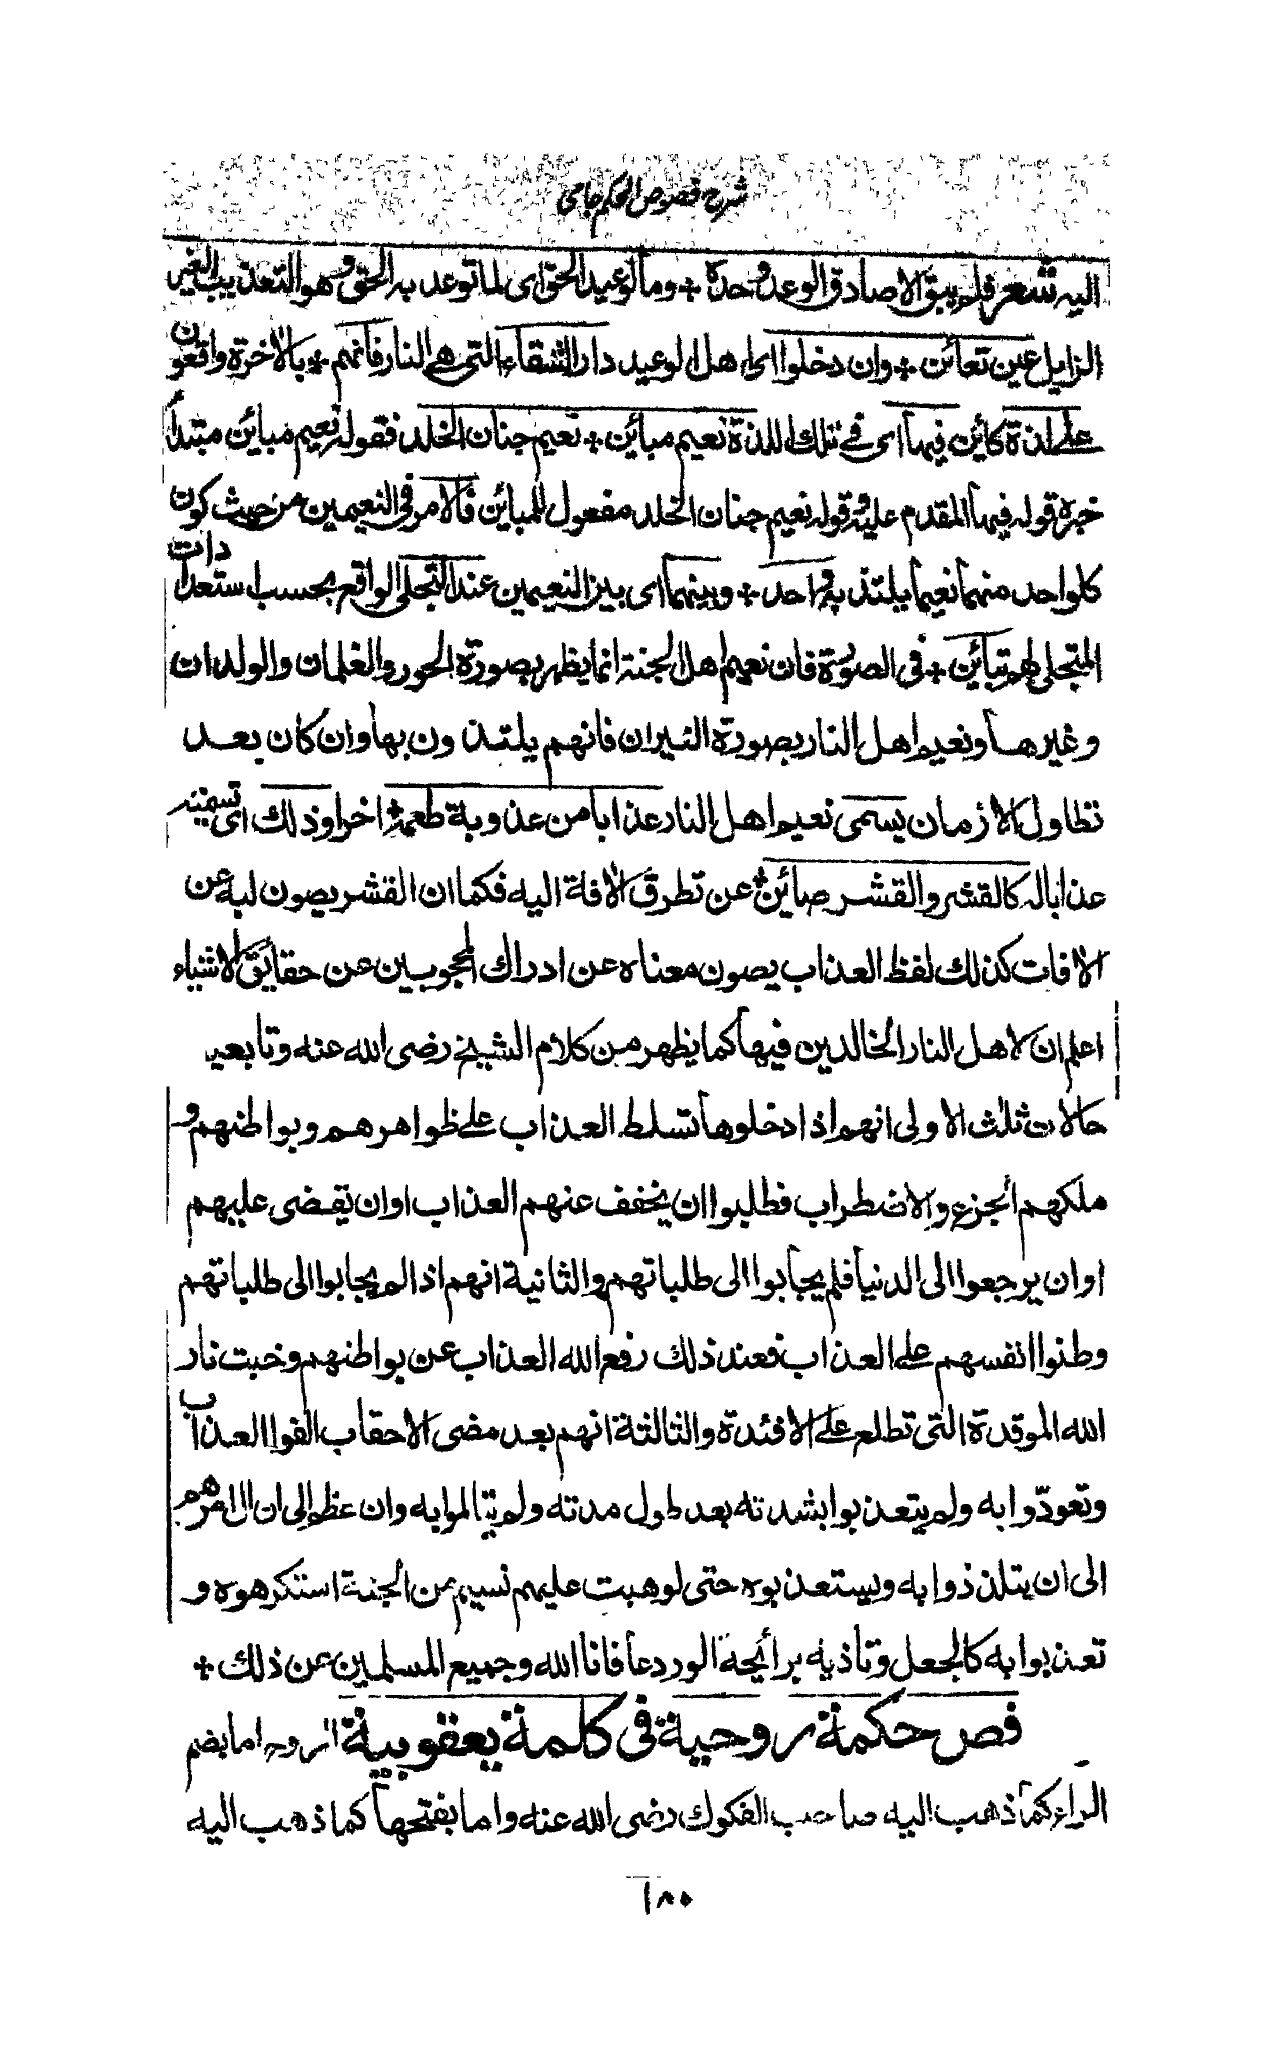 شرح فصوص الحكم جامى
اليه شعر فلم يبق الا صادق الوعد وحده + وما لوعيد الحق اى لما توعد به الحق وهو التعذيب الغير
الزايل عين تعائن + وان دخلوا اى اهل الوعيد دار الشقاء التى هى النار فانهم + بالاخرة واقعون
على لذة كائن فيها اى فى تلك اللذة نعيم مبائن + نعيم جنان الخلد فقوله نعيم مبائن مبتدأ
خبره قوله فيها المقدم عليه وقوله نعيم جنان الخلد مفعول للمبائن فالامر فى النعيمين من حيث كون
كل واحد منهما نعيما يلتذ به واحد + وبينهما اى بين النعيمين عند التجلى الواقع بحسب استعدادات
المتجلى لهم تبائن + فى الصورة فان نعيم اهل الجنة انما يظهر بصورة الحور والغلمان والولدان
وغيرها ونعيم اهل النار بصورة النيران فانهم يلتذون بها وان كان بعد
تطاول الازمان يسمى نعيم اهل النار عذابا من عذوبة طعمه + اخرا وذلك اى تسميته
عذابا له كالقشر والقشر صائن + عن تطرق الافة اليه فكما ان القشر يصون لبه عن
الافات كذلك لفظ العذاب يصون معناه عن ادراك المحجوبين عن حقايق الاشياء
اعلم ان لاهل النار الخالدين فيها كما يظهر من كلام الشيخ رضى الله عنه وتابعيه
حالات ثلث الاولى انهم اذا دخلوها تسلط العذاب على ظواهرهم وبواطنهم و
ملكهم الجزع والاضطراب فطلبوا ان يخفف عنهم العذاب او ان يقضى عليهم
او ان يرجعوا الى الدنيا فلم يجابوا الى طلباتهم والثانية انهم اذا لم يجابوا الى طلباتهم
وطنوا انفسهم على العذاب فعند ذلك رفع الله العذاب عن بواطنهم وخبت نار
الله الموقدة التى تطلع على الافئدة والثالثة انهم بعد مضى الاحقاب الفوا العذاب
وتعودوا به ولم يتعذبوا بشدته بعد طول مدته ولم يتالموا به وان عظم الى ان ال امرهم
الى ان يتلذذوا به ويستعذبوه حتى لو هبت عليهم نسيم من الجنة استكرهوه و
تعذبوا به كالجعل وتاذيه برائحة الورد عافانا الله وجميع المسلمين عن ذلك +
فص حكمة روحية فى كلمة يعقوبية الروح اما بضم
الراء كما ذهب اليه صاحب الفكوك رضى الله عنه واما بفتحها كما ذهب اليه
١٨٥